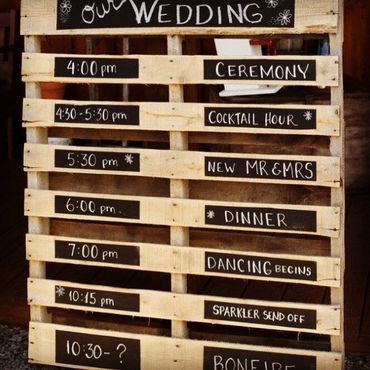 our WEDDING
4:00 pm CEREMONY
4:30-5:30pm COCKTAIL HOUR
5:30 pm NEW MR & MRS
6:00 pm DINNER
7:00 pm DANCING BEGINS
10:15 pm SPARKLER SEND OFF
10:30-? BONFIRE